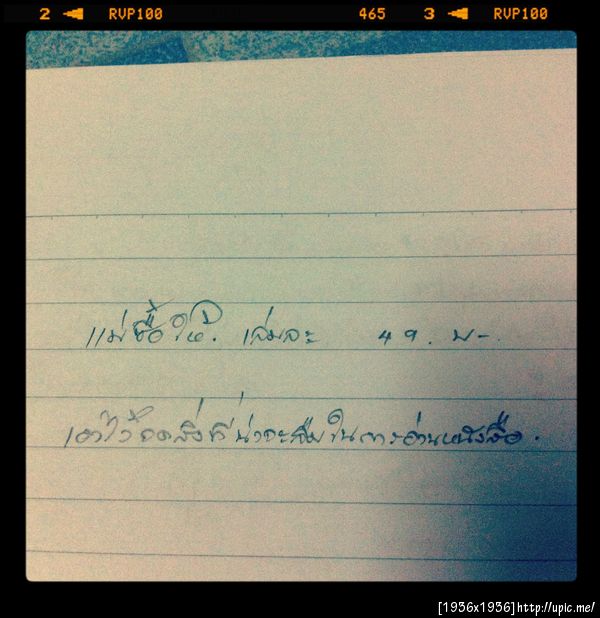 2 ◀ RVP100 465 3 ◀ RVP100
แม่ซื้อให้. เล่มละ 49. บ-.
เอาไว้จดสิ่งที่น่าจะลืมในการอ่านหนังสือ.
[1936x1936]http://upic.me/